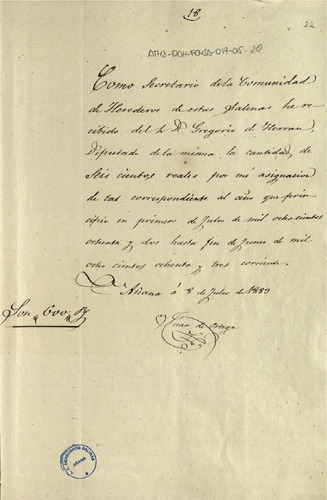 18
22
ATHA-DOH-FCHSA-017-05-20
Como Secretario de la Comunidad
de Herederos de estas Salinas he re-
cibido del Sr. Dn. Gregorio de Herran,
Diputado de la misma la cantidad de
Seis cientos reales por mi asignacion
de tal correspondiente al año que prin-
cipio en primero de Julio de mil ocho cientos
ochenta y dos hasta fin de Junio de mil
ocho cientos ochenta y tres corriente.
Añana á 8 de Julio de 1883
Juan de Ortega
Son 600 r
HEREDEROS SALINAS
AÑANA